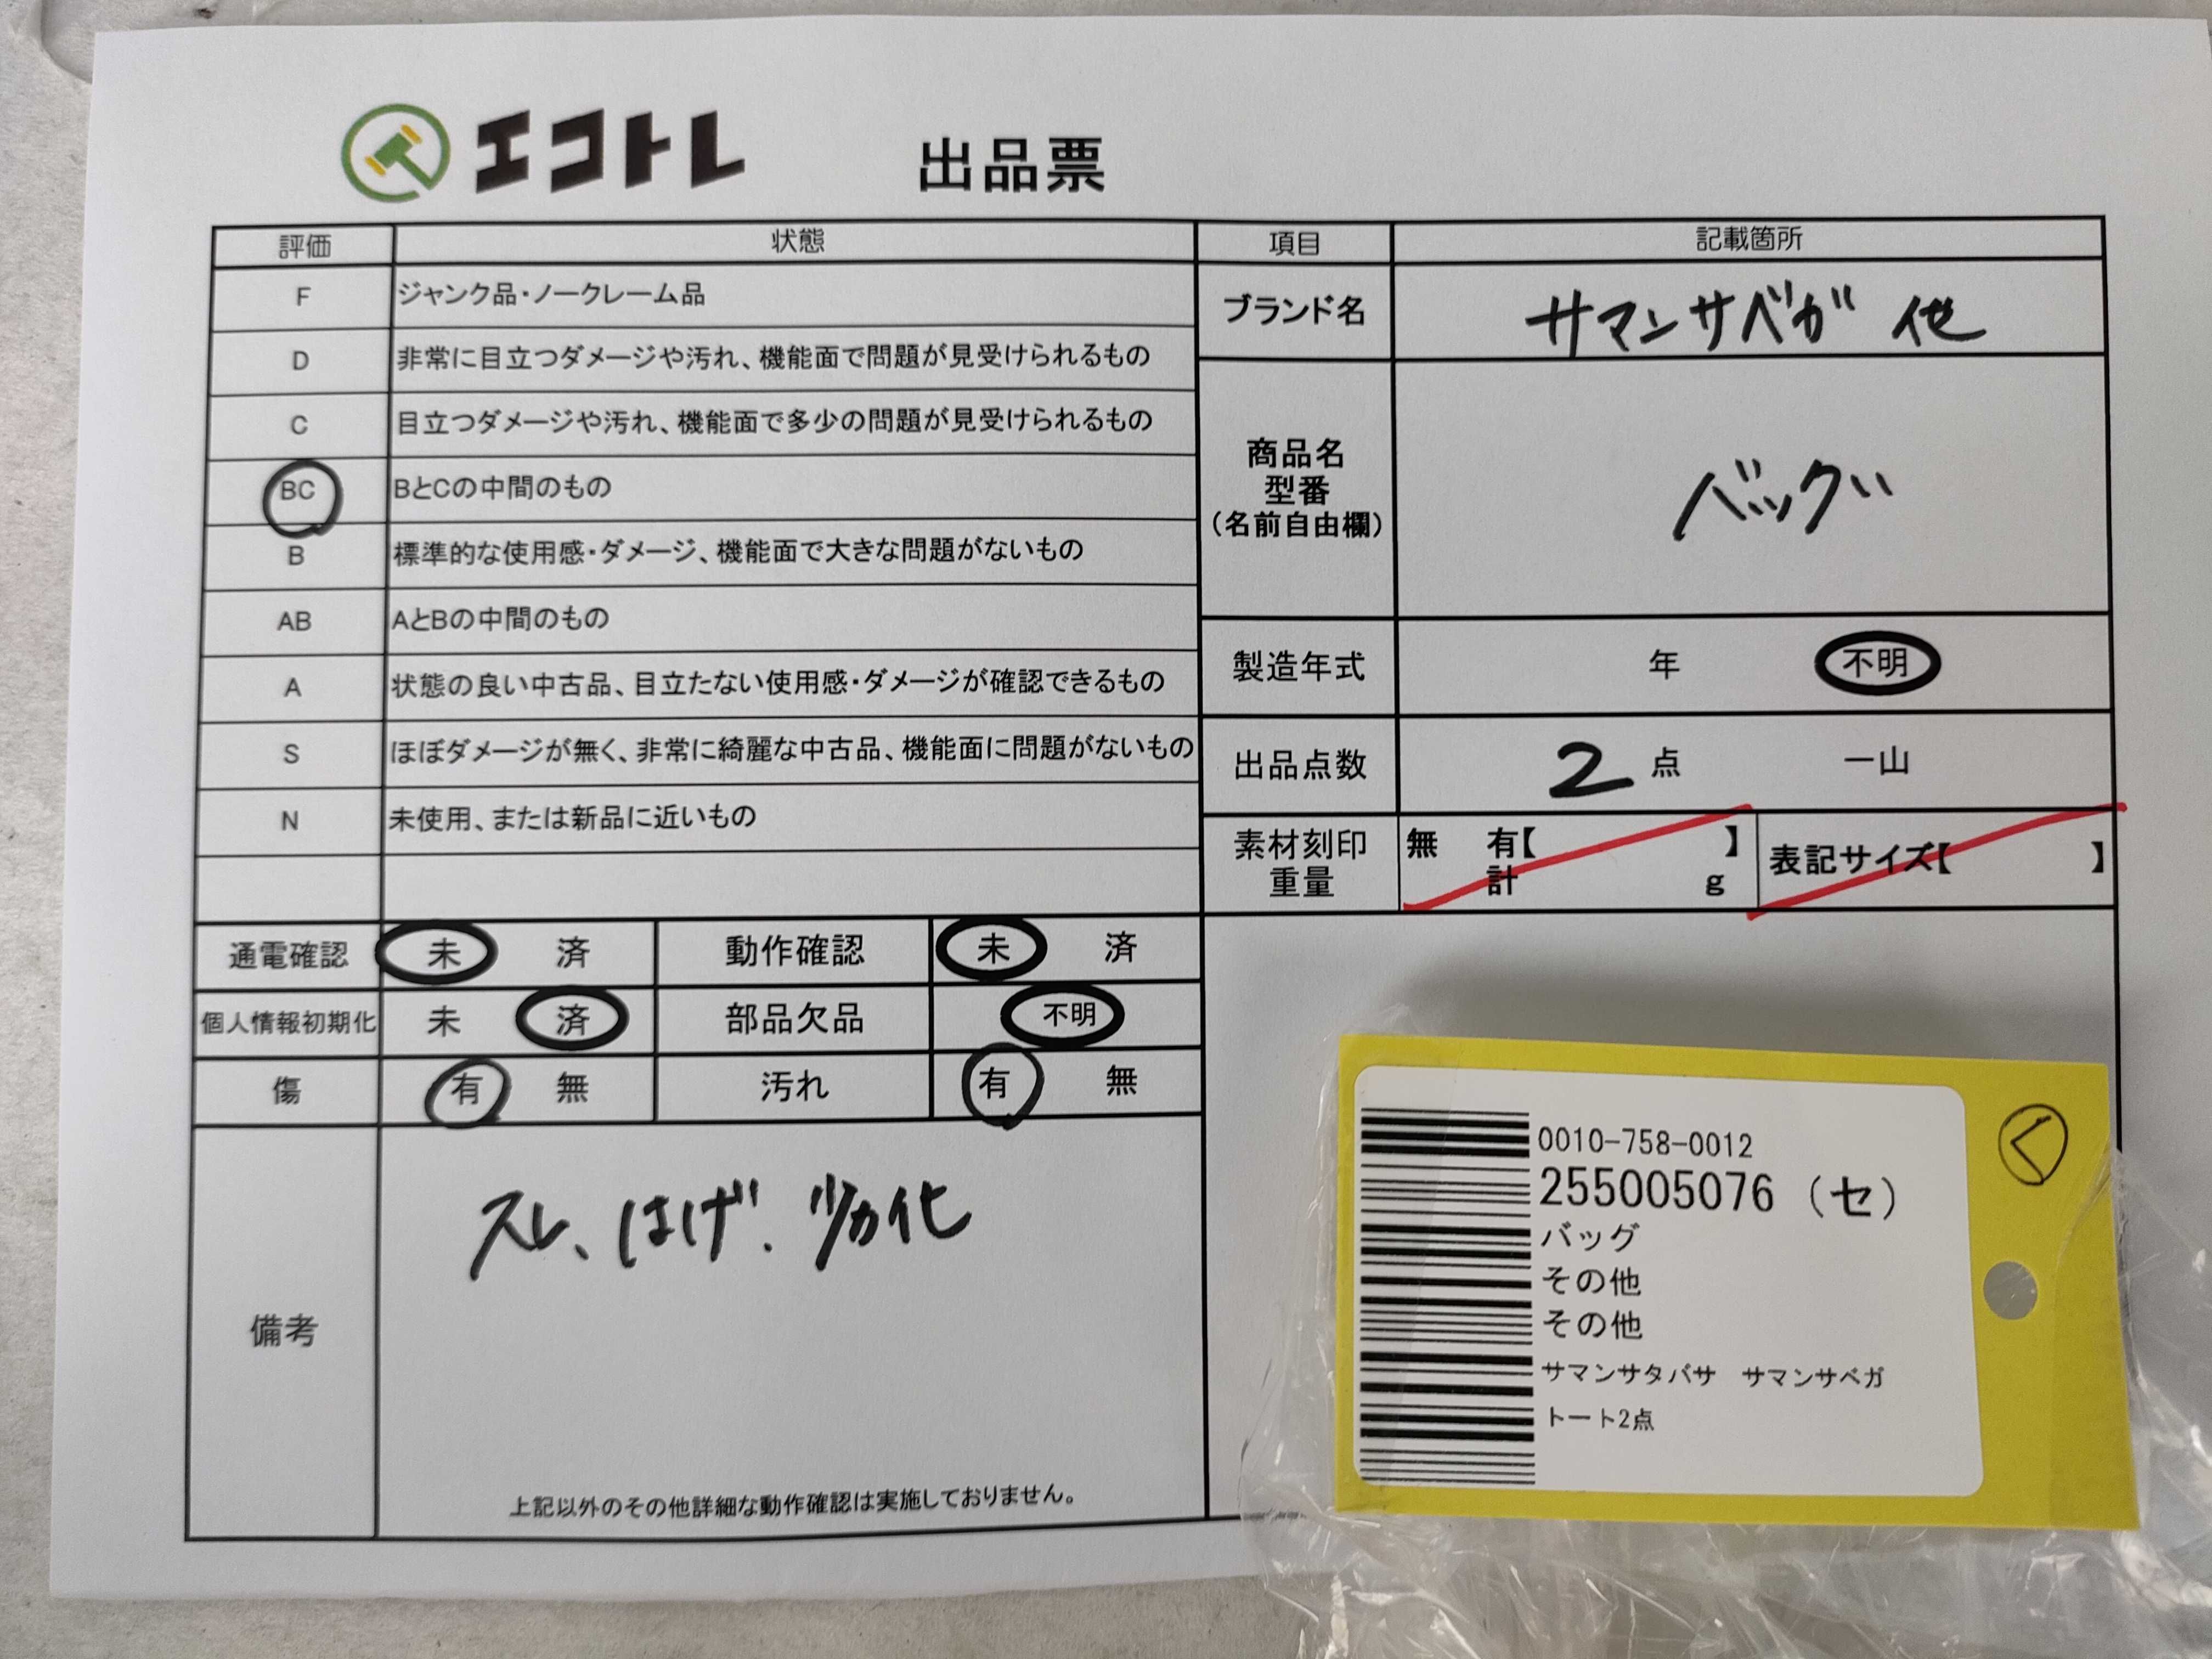 エコトレ 出品票
評価 状態
F ジャンク品・ノークレーム品
D 非常に目立つダメージや汚れ、機能面で問題が見受けられるもの
C 目立つダメージや汚れ、機能面で多少の問題が見受けられるもの
BC BとCの中間のもの
B 標準的な使用感・ダメージ、機能面で大きな問題がないもの
AB AとBの中間のもの
A 状態の良い中古品、目立たない使用感・ダメージが確認できるもの
S ほぼダメージが無く、非常に綺麗な中古品、機能面に問題がないもの
N 未使用、または新品に近いもの
項目 記載箇所
ブランド名 サマンサベガ 他
商品名
型番
(名前自由欄)
バッグ
製造年式 年 不明
出品点数 2 点 一山
素材刻印 無 有【 】
重量 計 g
表記サイズ【 】
通電確認 未 済 動作確認 未 済
個人情報初期化 未 済 部品欠品 不明
傷 有 無 汚れ 有 無
備考
スレ、はげ.
上記以外のその他詳細な動作確認は実施しておりません。
0010-758-0012
255005076 (セ)
バッグ
その他
その他
サマンサタバサ サマンサベガ
トート2点
く